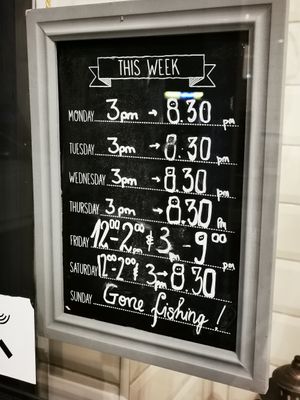 THIS WEEK
MONDAY 3pm → 8.30 pm
TUESDAY 3pm → 8.30 pm
WEDNESDAY 3pm → 8.30 pm
THURSDAY 3pm → 8.30 pm
FRIDAY 12⁰⁰-2⁰⁰pm & 3pm - 9⁰⁰ pm
SATURDAY 12⁰⁰-2⁰⁰ & 3pm → 8.30
SUNDAY Gone fishing!